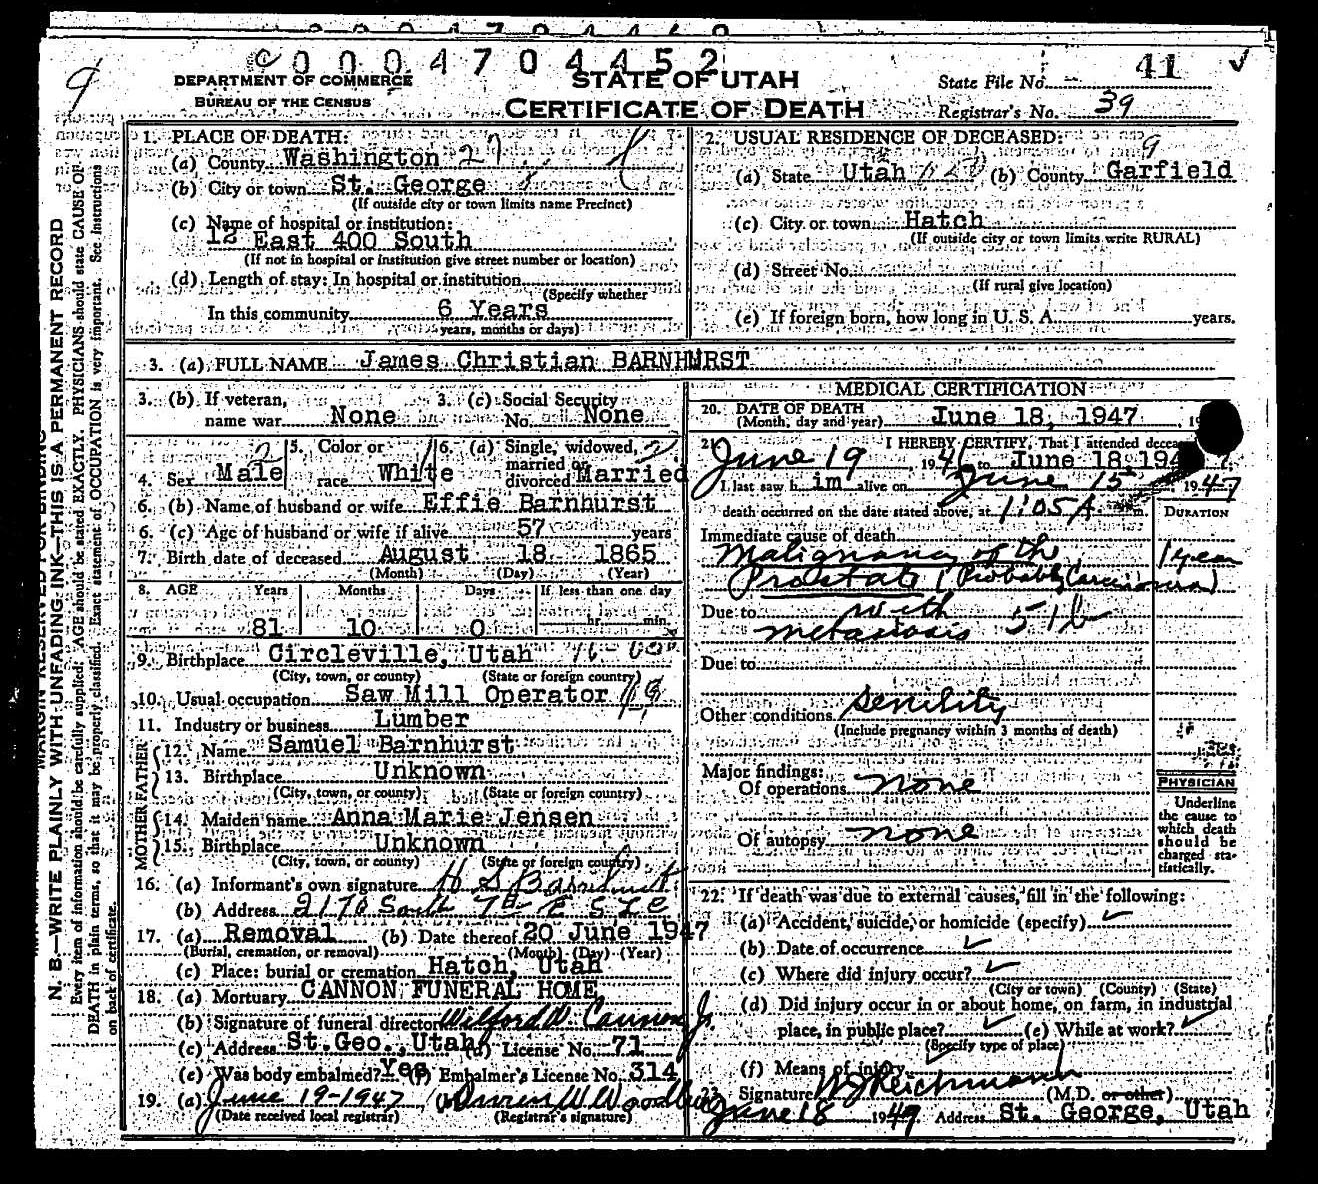 C 0 0 0 4 7 0 4 4 5 2
9
DEPARTMENT OF COMMERCE
BUREAU OF THE CENSUS
STATE OF UTAH
CERTIFICATE OF DEATH
State File No. 41 ✓
Registrar's No. 39
MARGIN RESERVED FOR BINDING
N. B.—WRITE PLAINLY WITH UNFADING INK—THIS IS A PERMANENT RECORD
Every item of information should be carefully supplied. AGE should be stated EXACTLY. PHYSICIANS should state CAUSE OF
DEATH in plain terms, so that it may be properly classified. Exact statement of OCCUPATION is very important. See Instructions
on back of certificate.
1. PLACE OF DEATH:
(a) County Washington 27
(b) City or town St. George
(If outside city or town limits name Precinct)
(c) Name of hospital or institution:
12 East 400 South
(If not in hospital or institution give street number or location)
(d) Length of stay: In hospital or institution
(Specify whether
In this community 6 Years
years, months or days)
2. USUAL RESIDENCE OF DECEASED:
9
(a) State Utah (b) County Garfield
(c) City or town Hatch
(If outside city or town limits write RURAL)
(d) Street No.
(If rural give location)
(e) If foreign born, how long in U. S. A. years.
3. (a) FULL NAME James Christian BARNHURST
3. (b) If veteran, 3. (c) Social Security
name war None No. None
4. Sex Male 5. Color or race White 6. (a) Single, widowed, married or divorced Married
2 1 2
6. (b) Name of husband or wife Effie Barnhurst
6. (c) Age of husband or wife if alive 57 years
7. Birth date of deceased August 18 1865
(Month) (Day) (Year)
8. AGE Years Months Days If less than one day
81 10 0 hr. min.
9. Birthplace Circleville, Utah
(City, town, or county) (State or foreign country)
10. Usual occupation Saw Mill Operator
11. Industry or business Lumber
FATHER
12. Name Samuel Barnhurst
13. Birthplace Unknown
(City, town, or county) (State or foreign country)
MOTHER
14. Maiden name Anna Marie Jensen
15. Birthplace Unknown
(City, town, or county) (State or foreign country)
16. (a) Informant's own signature H S Barnhurst
(b) Address 2170 South 7th E S L C
17. (a) Removal (b) Date thereof 20 June 1947
(Burial, cremation, or removal) (Month) (Day) (Year)
(c) Place: burial or cremation Hatch, Utah
18. (a) Mortuary CANNON FUNERAL HOME
(b) Signature of funeral director Wilford W. Cannon Jr.
(c) Address St.Geo., Utah (d) License No. 71
(e) Was body embalmed? Yes (f) Embalmer's License No. 314
19. (a) June 19-1947 (b) W. Woodbury
(Date received local registrar) (Registrar's signature)
MEDICAL CERTIFICATION
20. DATE OF DEATH
(Month, day and year) June 18, 1947
21. I HEREBY CERTIFY, That I attended deceased
June 19, 1946 to June 18 194
I last saw him alive on June 15 1947
death occurred on the date stated above, at 1:05 A m.
DURATION
Immediate cause of death
Malignancy of the 1 year
Prostate (Probably Carcinoma)
Due to with
metastasis 51b
Due to
Other conditions Senility
(Include pregnancy within 3 months of death)
Major findings:
Of operations none
Of autopsy none
PHYSICIAN
Underline
the cause to
which death
should be
charged sta-
tistically.
22. If death was due to external causes, fill in the following:
(a) Accident, suicide, or homicide (specify) ✓
(b) Date of occurrence ✓
(c) Where did injury occur? ✓
(City or town) (County) (State)
(d) Did injury occur in or about home, on farm, in industrial
place, in public place? ✓ (e) While at work? ✓
(Specify type of place)
(f) Means of injury ✓
23. Signature W J Reichmann (M.D. or other)
June 18 1947 Address St. George, Utah